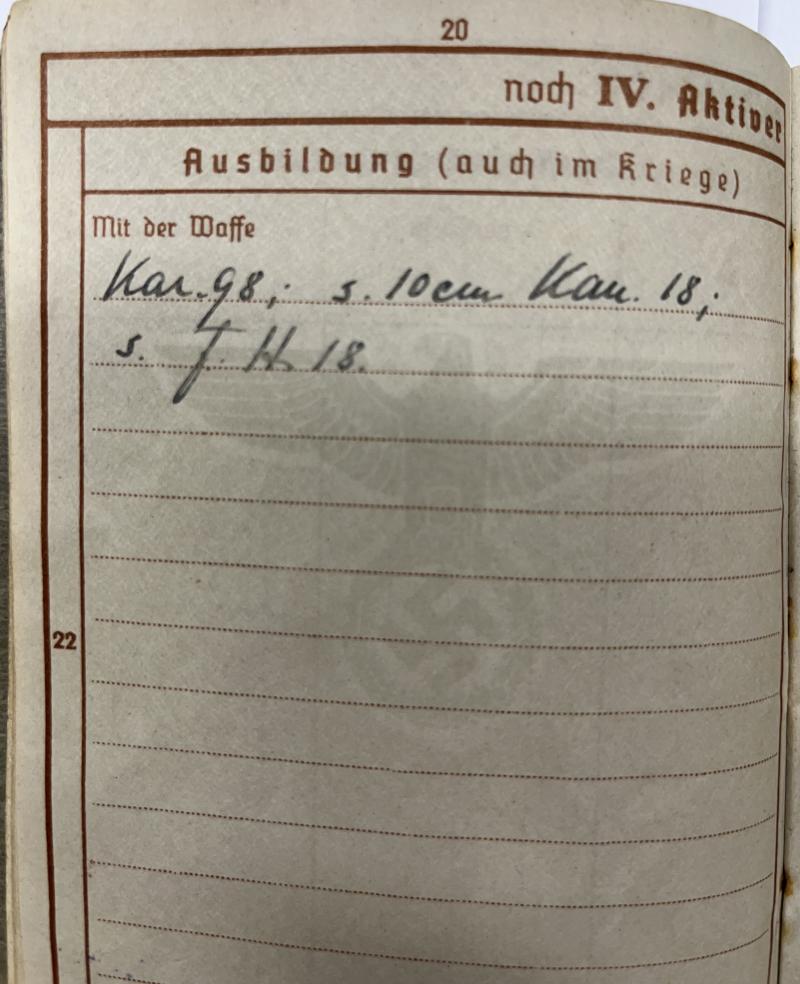 20
noch IV. Aktiver
Ausbildung (auch im Kriege)
Mit der Waffe
Kar. 98; s. 10cm Kan. 18;
s. F. H. 18.
22